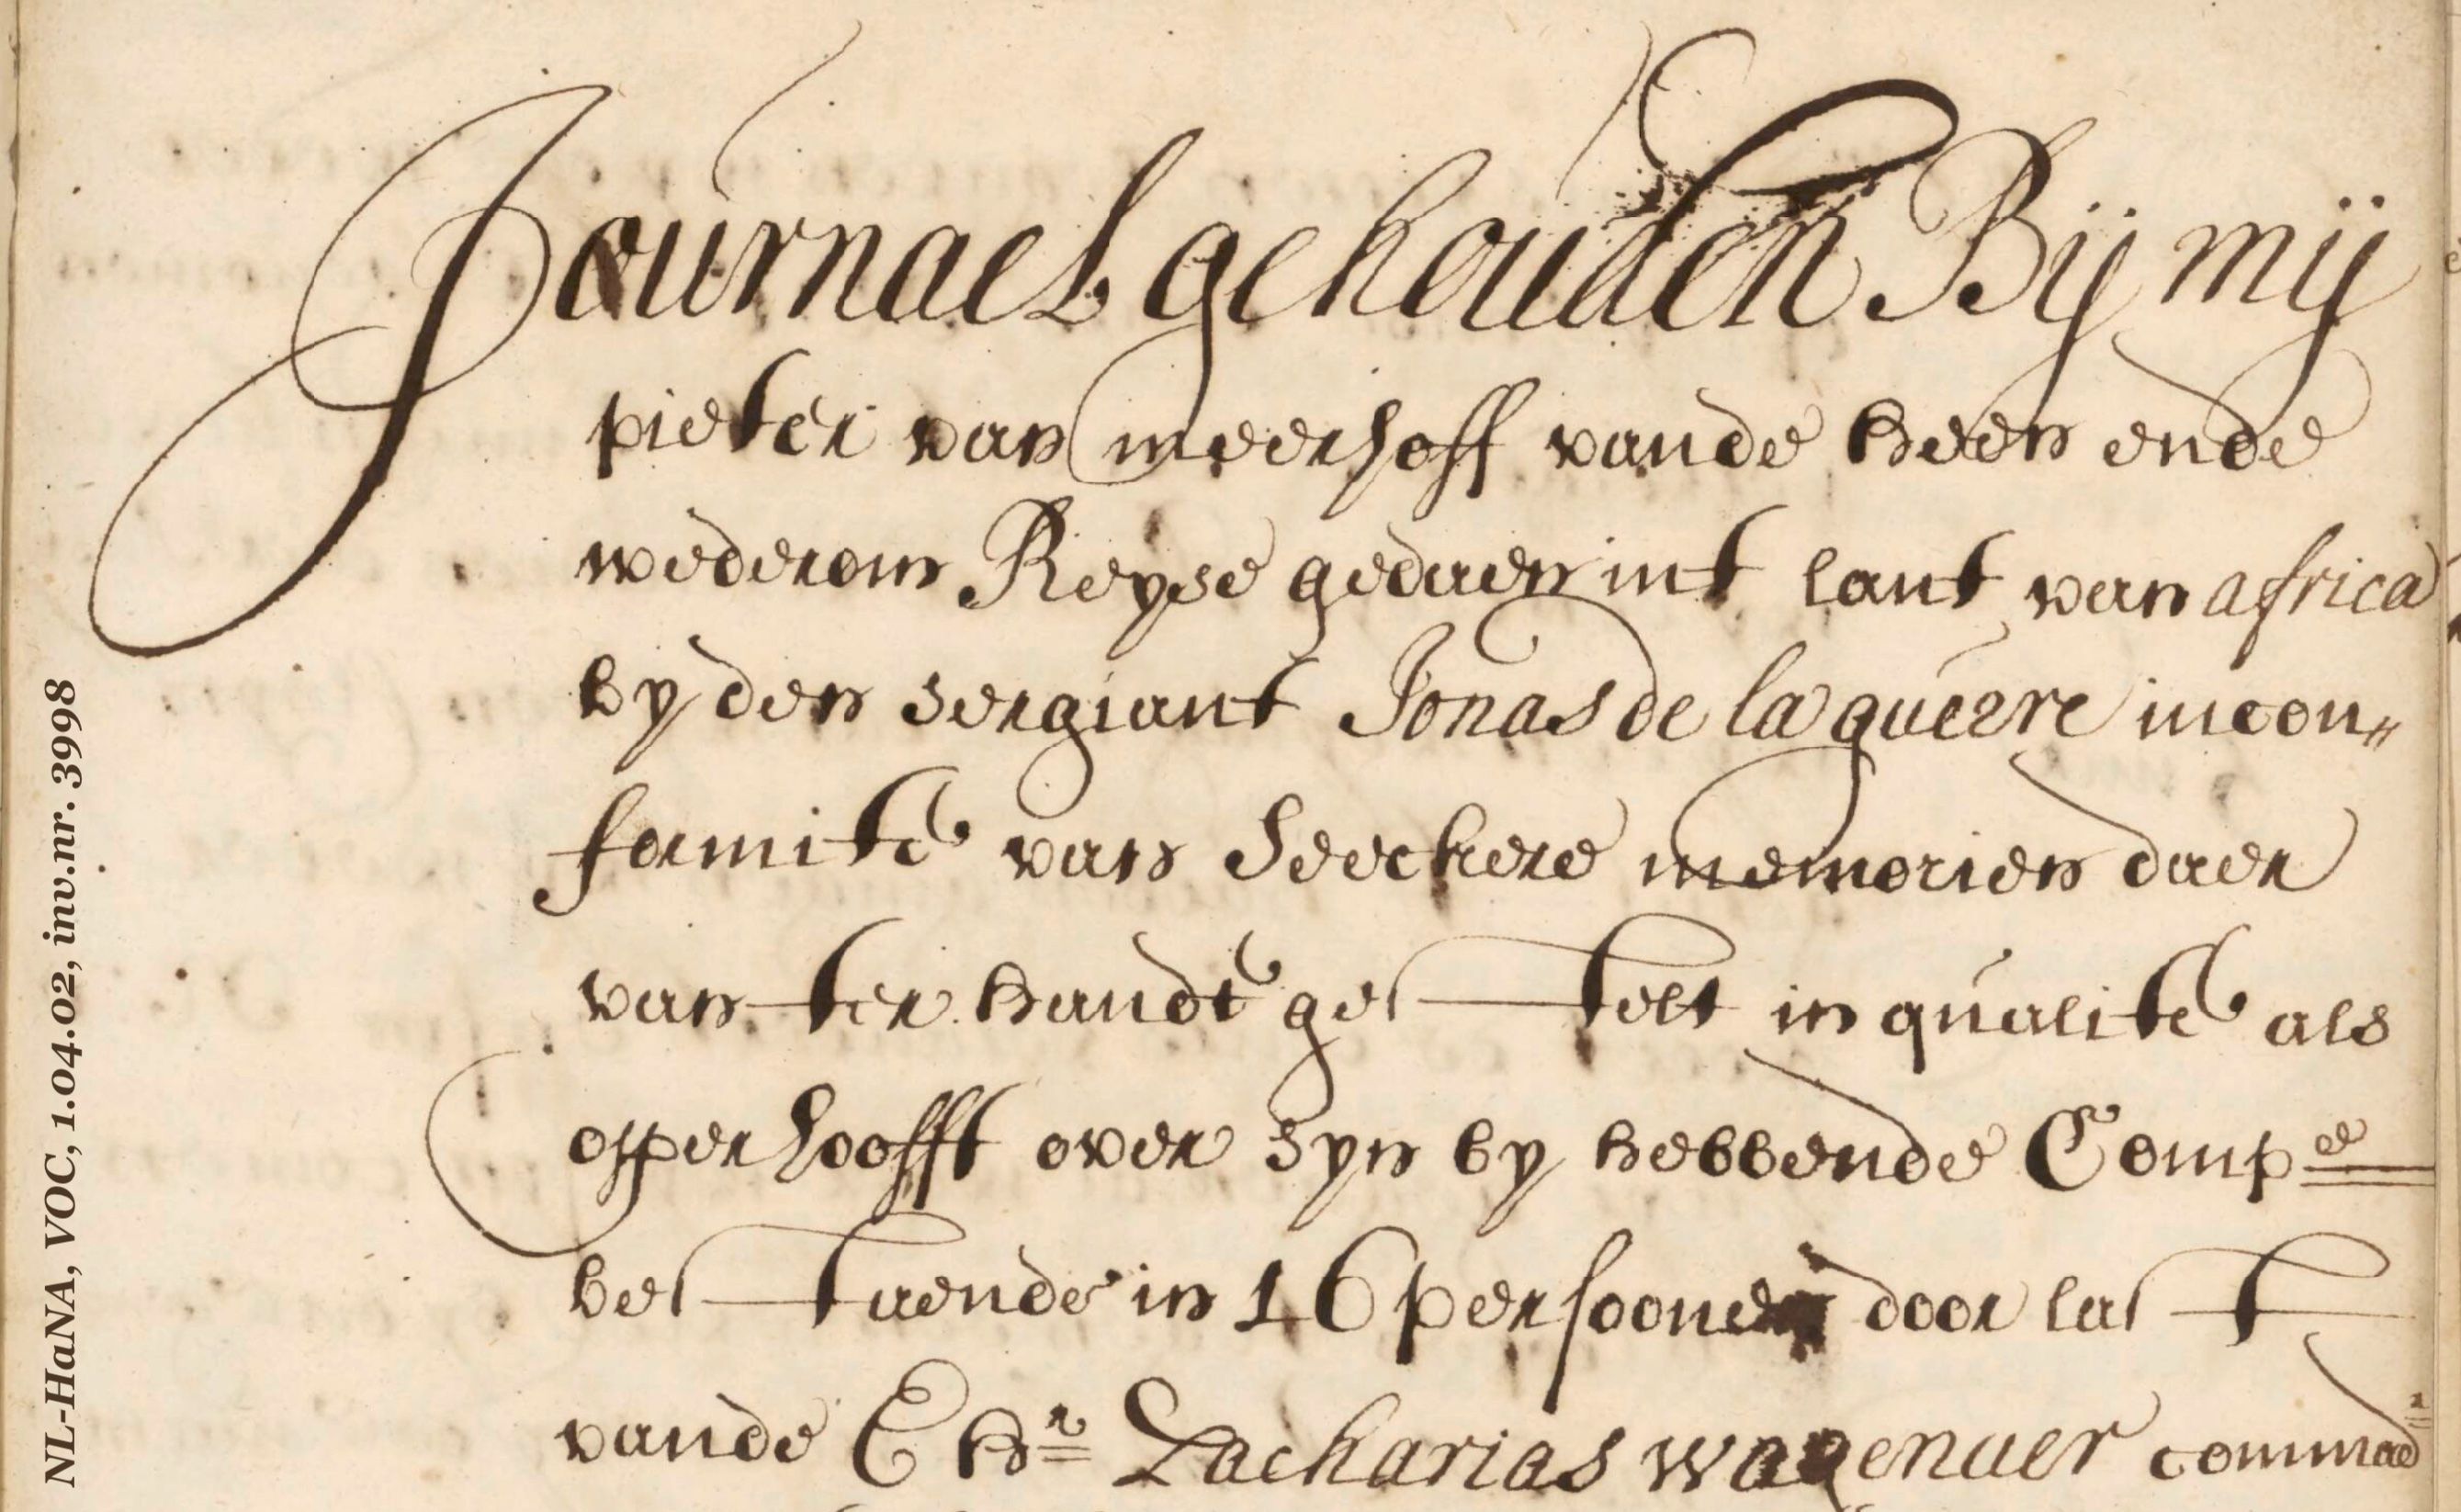 Journael gehouden Bij mij
pieter van meerhoff vande heen ende
wederom Reyse gedaen int lant van africa
by den sergiant Jonas de la guerre in con„
formite van Seeckere memorien daer
van ter handt gestelt in qualite als
opperhoofft over syn by hebbende Compe
bestaende in 16 persoonen door last
vande E hr Zacharias wagenaer commadr
NL-HaNA, VOC, 1.04.02, inv.nr. 3998